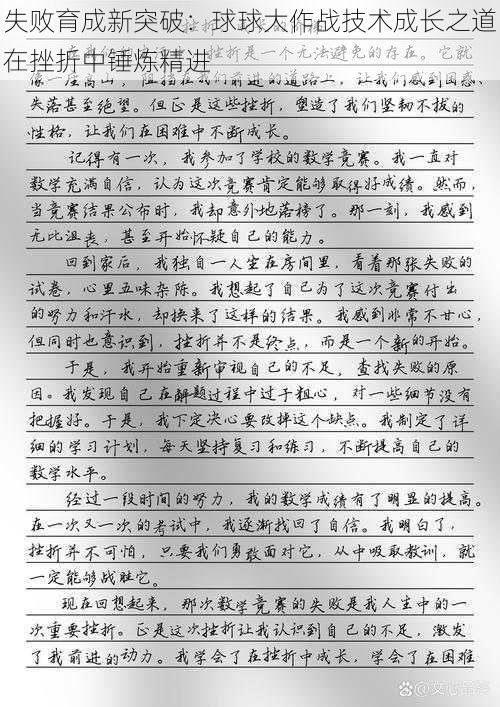 失败育成新突破：球球大作战技术成长之道
在挫折中锤炼精进
挫折是一个无法避免的存在。它就
像一座高山，阻挡在我们前进的道路上，让我们感到困惑、
失落甚至绝望。但正是这些挫折，塑造了我们坚韧不拔的
性格，让我们在困难中不断成长。
记得有一次，我参加了学校的数学竞赛。我一直对
数学充满自信，认为这次竞赛肯定能够取得好成绩。然而，
当竞赛结果公布时，我却意外地落榜了。那一刻，我感到
无比沮丧，甚至开始怀疑自己的能力。
回到家后，我独自一人坐在房间里，看着那张失败的
试卷，心里五味杂陈。我想起了自己为了这次竞赛付出
的努力和汗水，却换来了这样的结果。我感到非常不甘心，
但同时也意识到，挫折并不是终点，而是一个新的开始。
于是，我开始重新审视自己的不足，查找失败的原
因。我发现自己在解题过程中过于粗心，对一些细节没有
把握好。于是，我下定决心要改掉这个缺点。我制定了详
细的学习计划，每天坚持复习和练习，不断提高自己的
数学水平。
经过一段时间的努力，我的数学成绩有了明显的提高。
在一次又一次的考试中，我逐渐找回了自信。我明白了，
挫折并不可怕，只要我们勇敢面对它，从中吸取教训，就
一定能够战胜它。
现在回想起来，那次数学竞赛的失败是我人生中的一
次重要挫折。正是这次挫折让我认识到自己的不足，激发
了我前进的动力。我学会了在挫折中成长，学会了在困难